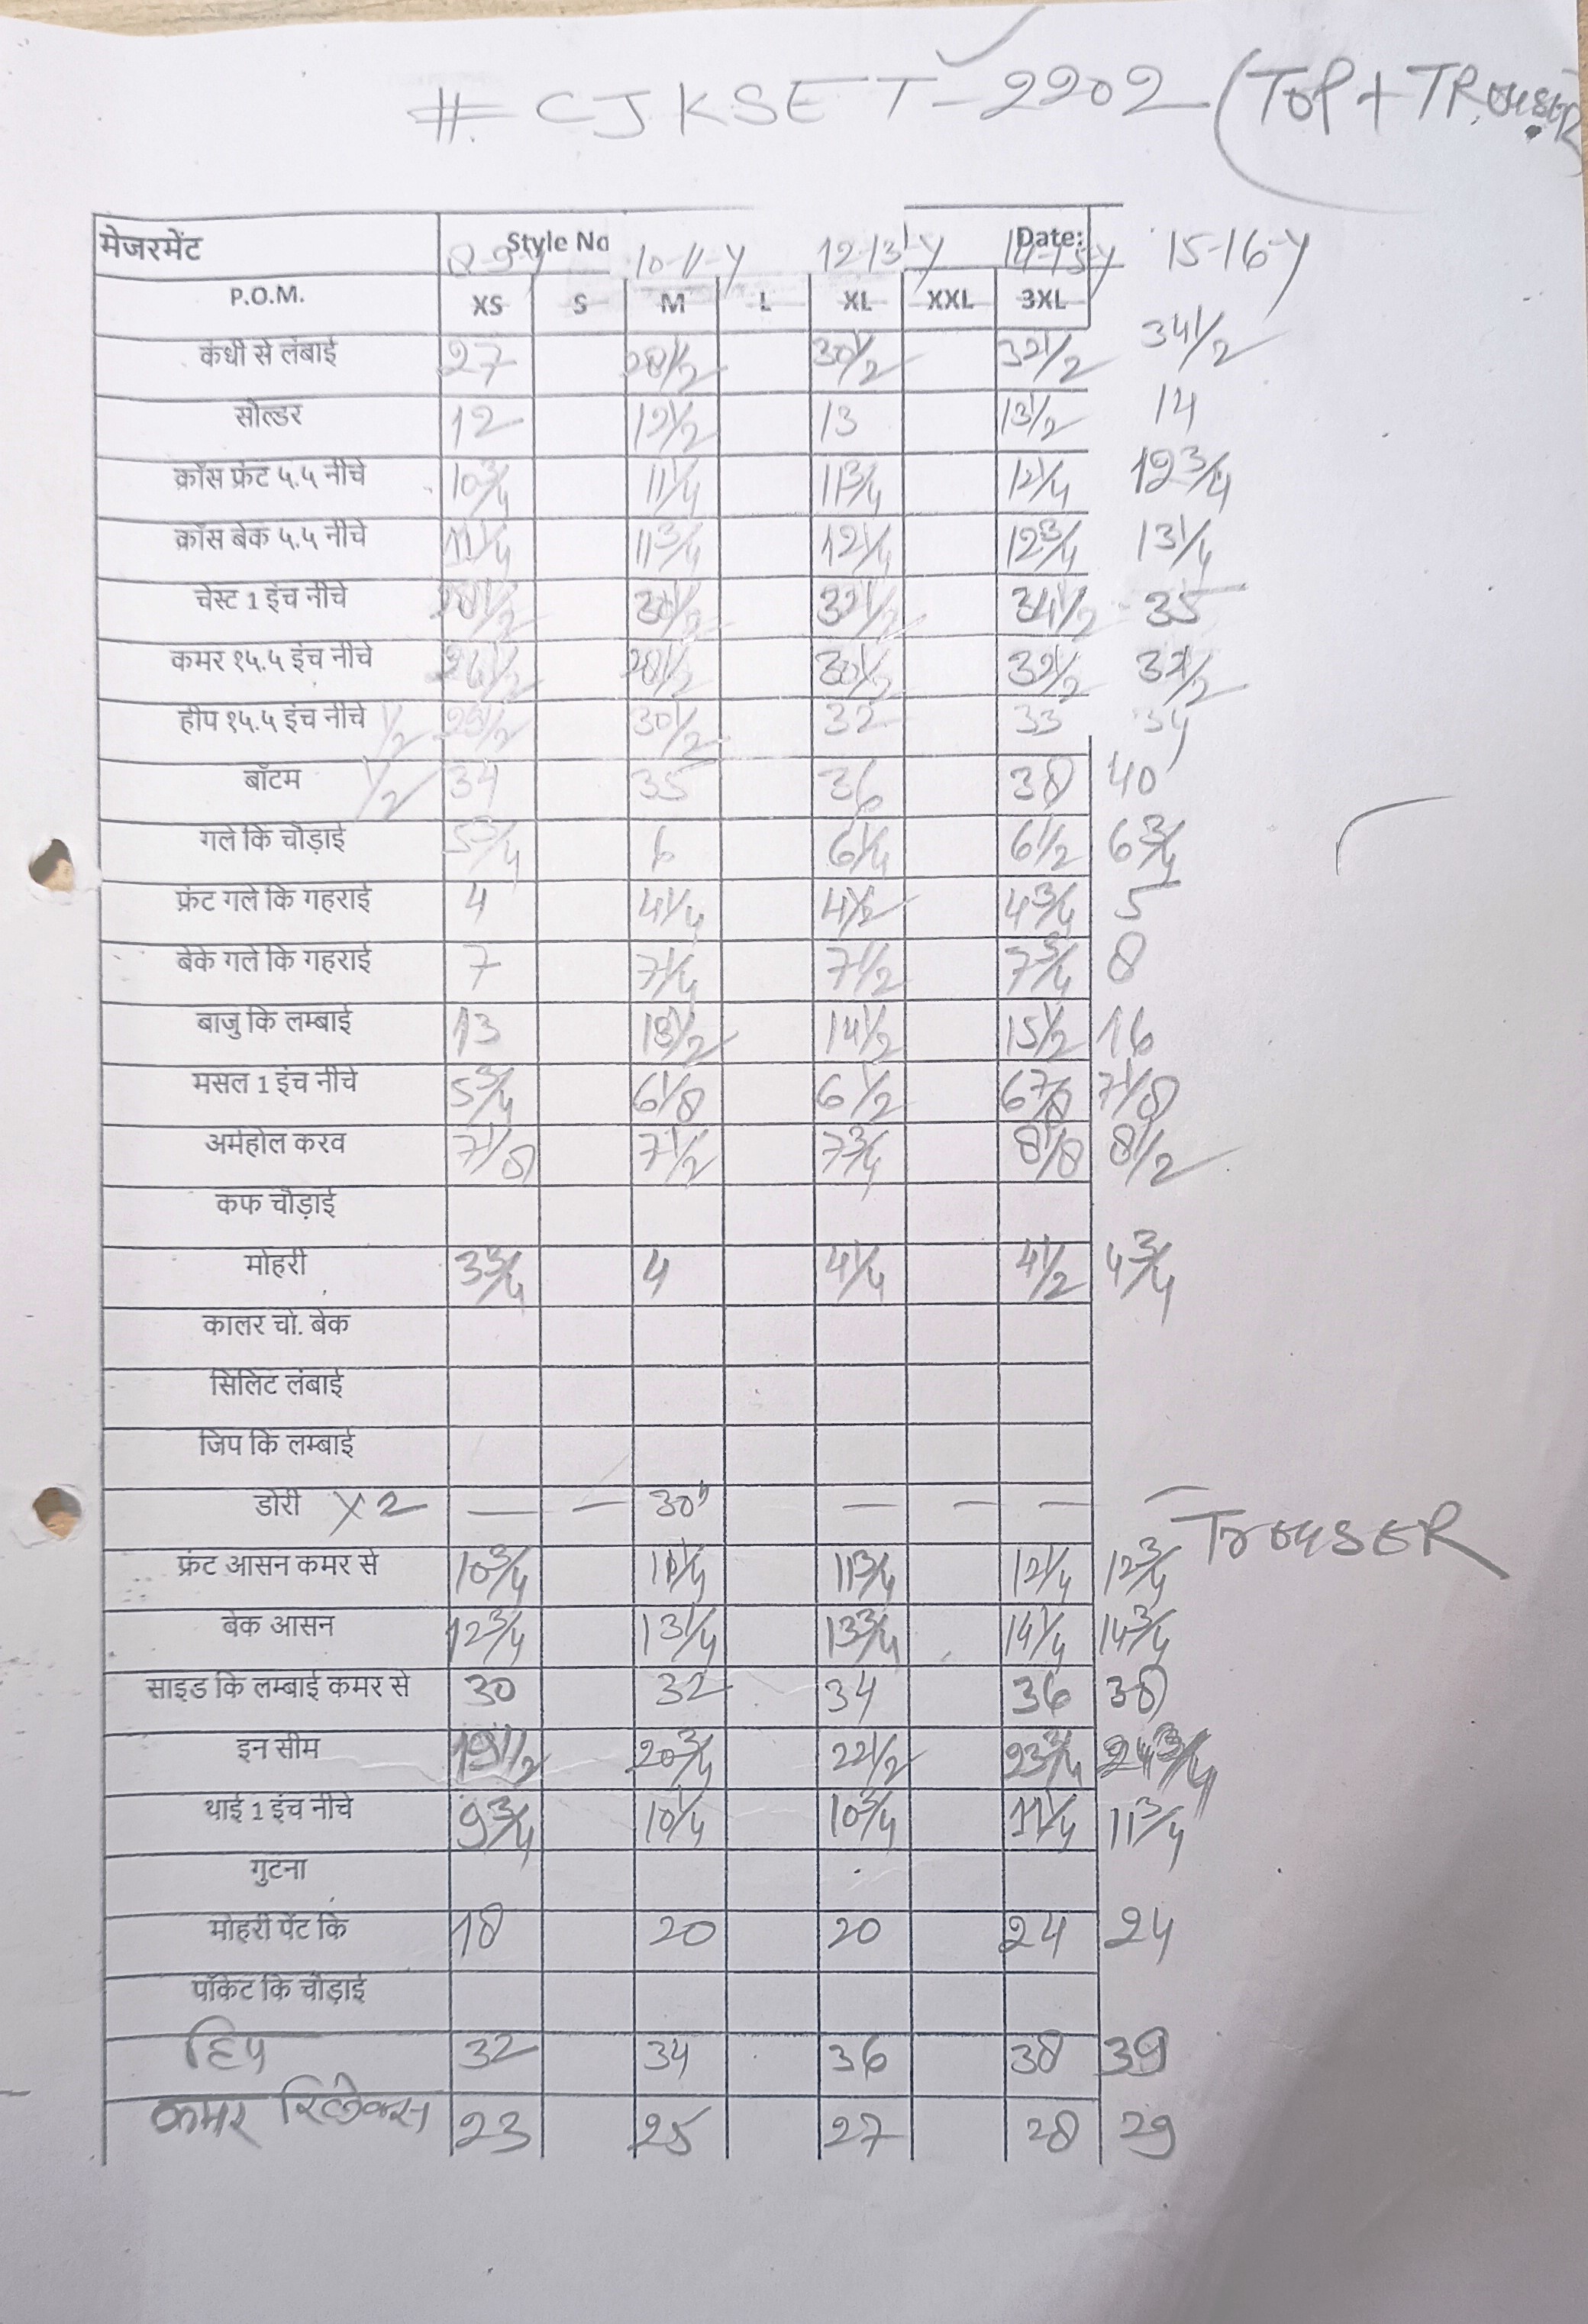 # CJKSET-2202 (TOP + TROUSER
मेजरमेंट Style No Date:
8-9-Y 10-11-Y 12-13-Y 14-15-Y 15-16-Y
P.O.M. XS S M L XL XXL 3XL
कंधी से लंबाई 27 28 1/2 30 1/2 32 1/2 34 1/2
सोल्डर 12 12 1/2 13 13 1/2 14
क्रॉस फ्रंट ५.५ नीचे 10 3/4 11 1/4 11 3/4 12 1/4 12 3/4
क्रॉस बेक ५.५ नीचे 11 1/4 11 3/4 12 1/4 12 3/4 13 1/4
चेस्ट 1 इंच नीचे 28 1/2 30 1/2 32 1/2 34 1/2 35
कमर १५.५ इंच नीचे 26 1/2 28 1/2 30 1/2 32 1/2
हीप १५.५ इंच नीचे 1/2 28 1/2 30 1/2 32 33 34
बॉटम 1/2 34 35 36 38 40
गले कि चौड़ाई 5 3/4 6 6 1/4 6 1/2 6 3/4
फ्रंट गले कि गहराई 4 4 1/4 4 1/2 4 3/4 5
बेके गले कि गहराई 7 7 1/4 7 1/2 7 3/4 8
बाजु कि लम्बाई 13 13 1/2 14 1/2 15 1/2 16
मसल 1 इंच नीचे 5 3/4 6 1/8 6 1/2 6 7/8 7 1/8
अर्महोल करव 7 1/8 7 1/2 7 3/4 8 1/8 8 1/2
कफ चौड़ाई
मोहरी 3 3/4 4 4 1/4 4 1/2 4 3/4
कालर चो. बेक
सिलिट लंबाई
जिप कि लम्बाई
डोरी X 2 — — 30" — — — —
TrOUSER
फ्रंट आसन कमर से 10 3/4 11 1/4 11 3/4 12 1/4 12 3/4
बेक आसन 12 3/4 13 1/4 13 3/4 14 1/4 14 3/4
साइड कि लम्बाई कमर से 30 32 34 36 38
इन सीम 19 1/2 20 3/4 22 1/2 23 3/4 24 3/4
थाई 1 इंच नीचे 9 3/4 10 1/4 10 3/4 11 1/4 11 3/4
गुटना
मोहरी पेंट कि 18 20 20 24 24
पॉकेट कि चौड़ाई
हिप 32 34 36 38 39
कमर रिलेक्स 23 25 27 28 29